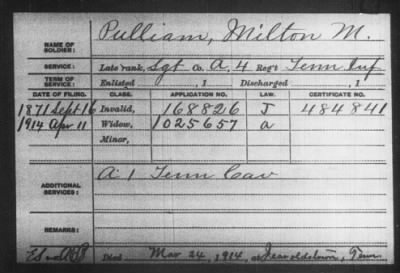 NAME OF SOLDIER: Pulliam, Milton M.
SERVICE: Late rank, Sgt Co. A, 4 Reg't Tenn Inf
TERM OF SERVICE: Enlisted , 1 Discharged , 1
DATE OF FILING. CLASS. APPLICATION NO. LAW. CERTIFICATE NO.
1871 Sept 16 Invalid, 168826 J 484841
1914 Apr 11 Widow, 1025657 a
Minor,
ADDITIONAL SERVICES: A 1 Tenn Cav
REMARKS:
Died Mar 24, 1914, at Tenn